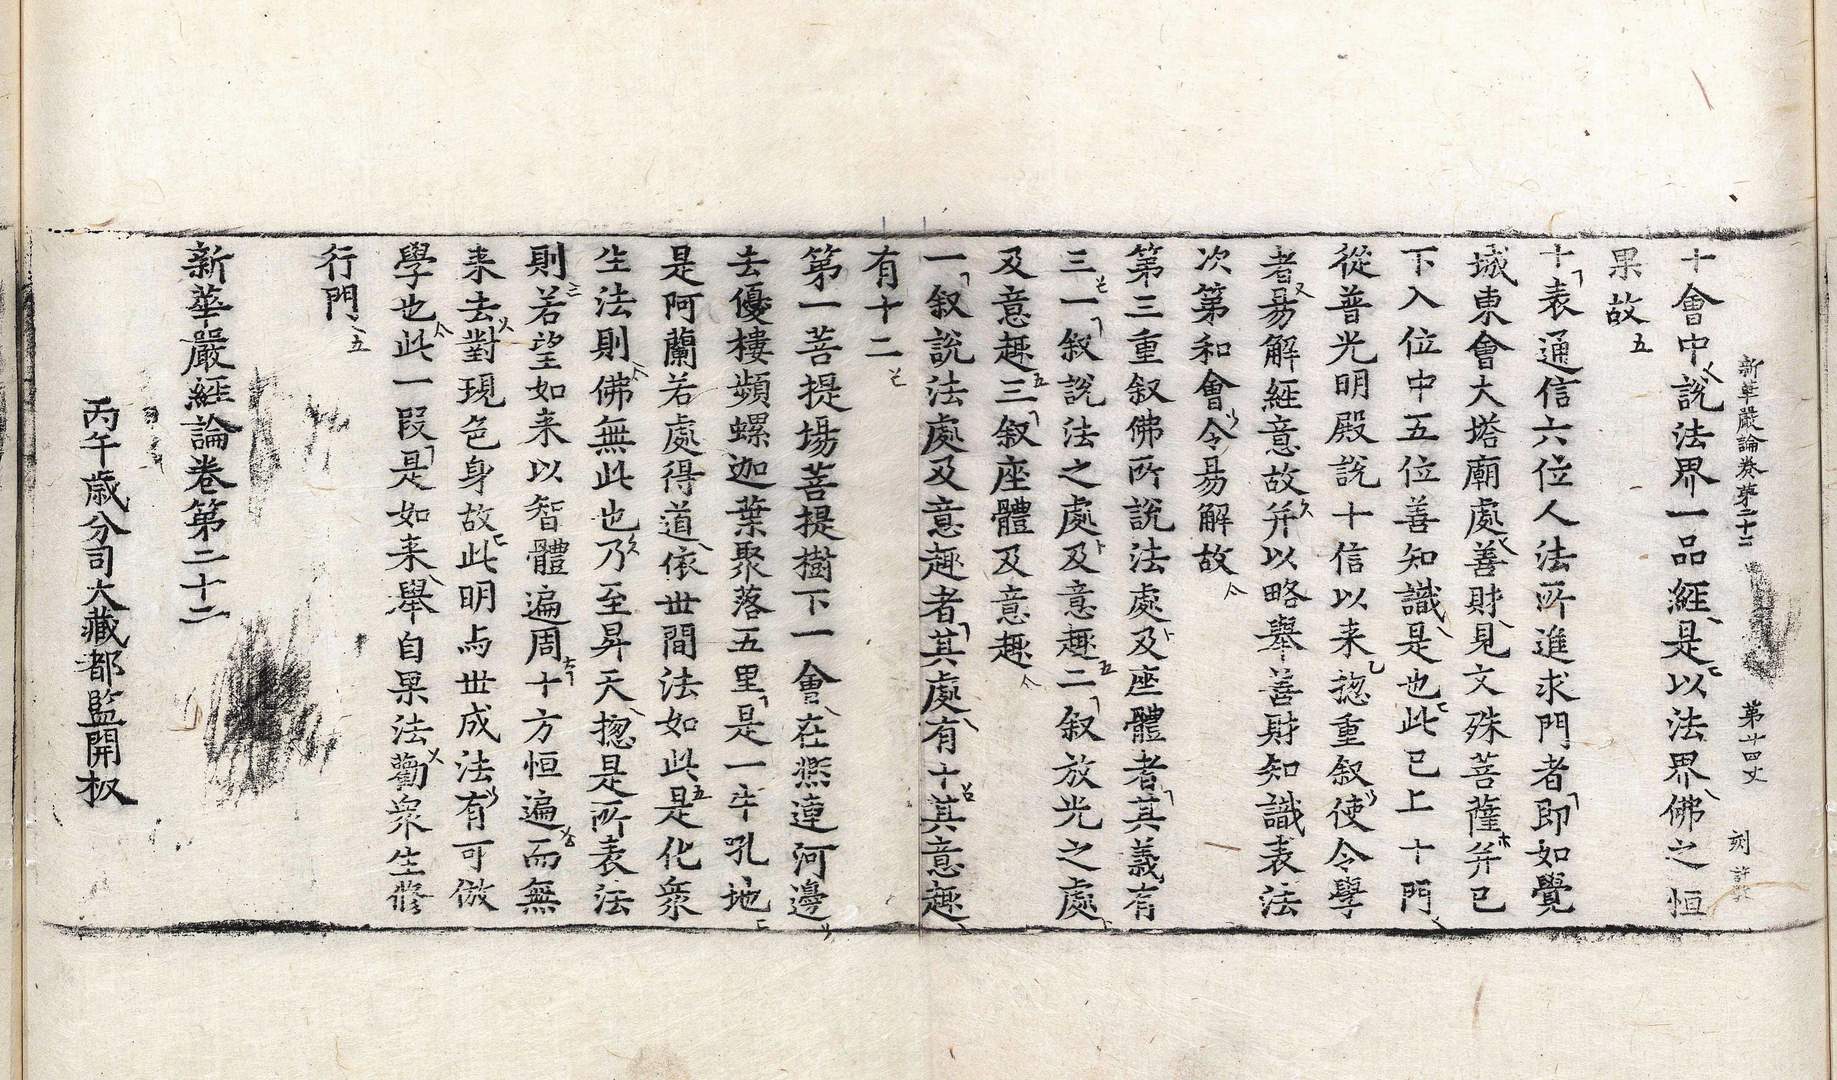 新華嚴論卷第二十二 第十四丈 刻
十會中說法界一品經是以法界佛之恒
果故
十表通信六位人法所進求門者即如覺
城東會大塔廟處善財見文殊菩薩并已
下入位中五位善知識是也此已上十門
從普光明殿說十信以来揔重叙使令學
者易解經意故并以略舉善財知識表法
次第和會令易解故
第三重叙佛所說法處及座體者其義有
三一叙說法之處及意趣二叙放光之處
及意趣三叙座體及意趣
一叙說法處及意趣者其處有十其意趣
有十二
第一菩提場菩提樹下一會在熈連河邊
去優樓頻螺迦葉聚落五里是一牛吼地
是阿蘭若處得道依世間法如此是化衆
生法則佛無此也乃至昇天揔是所表法
則若望如来以智體遍周十方恒遍而無
来去對現色身故此明与世成法有可倣
學也此一段是如来舉自果法勸衆生修
行門
新華嚴經論卷第二十二
丙午歲分司大藏都監開板